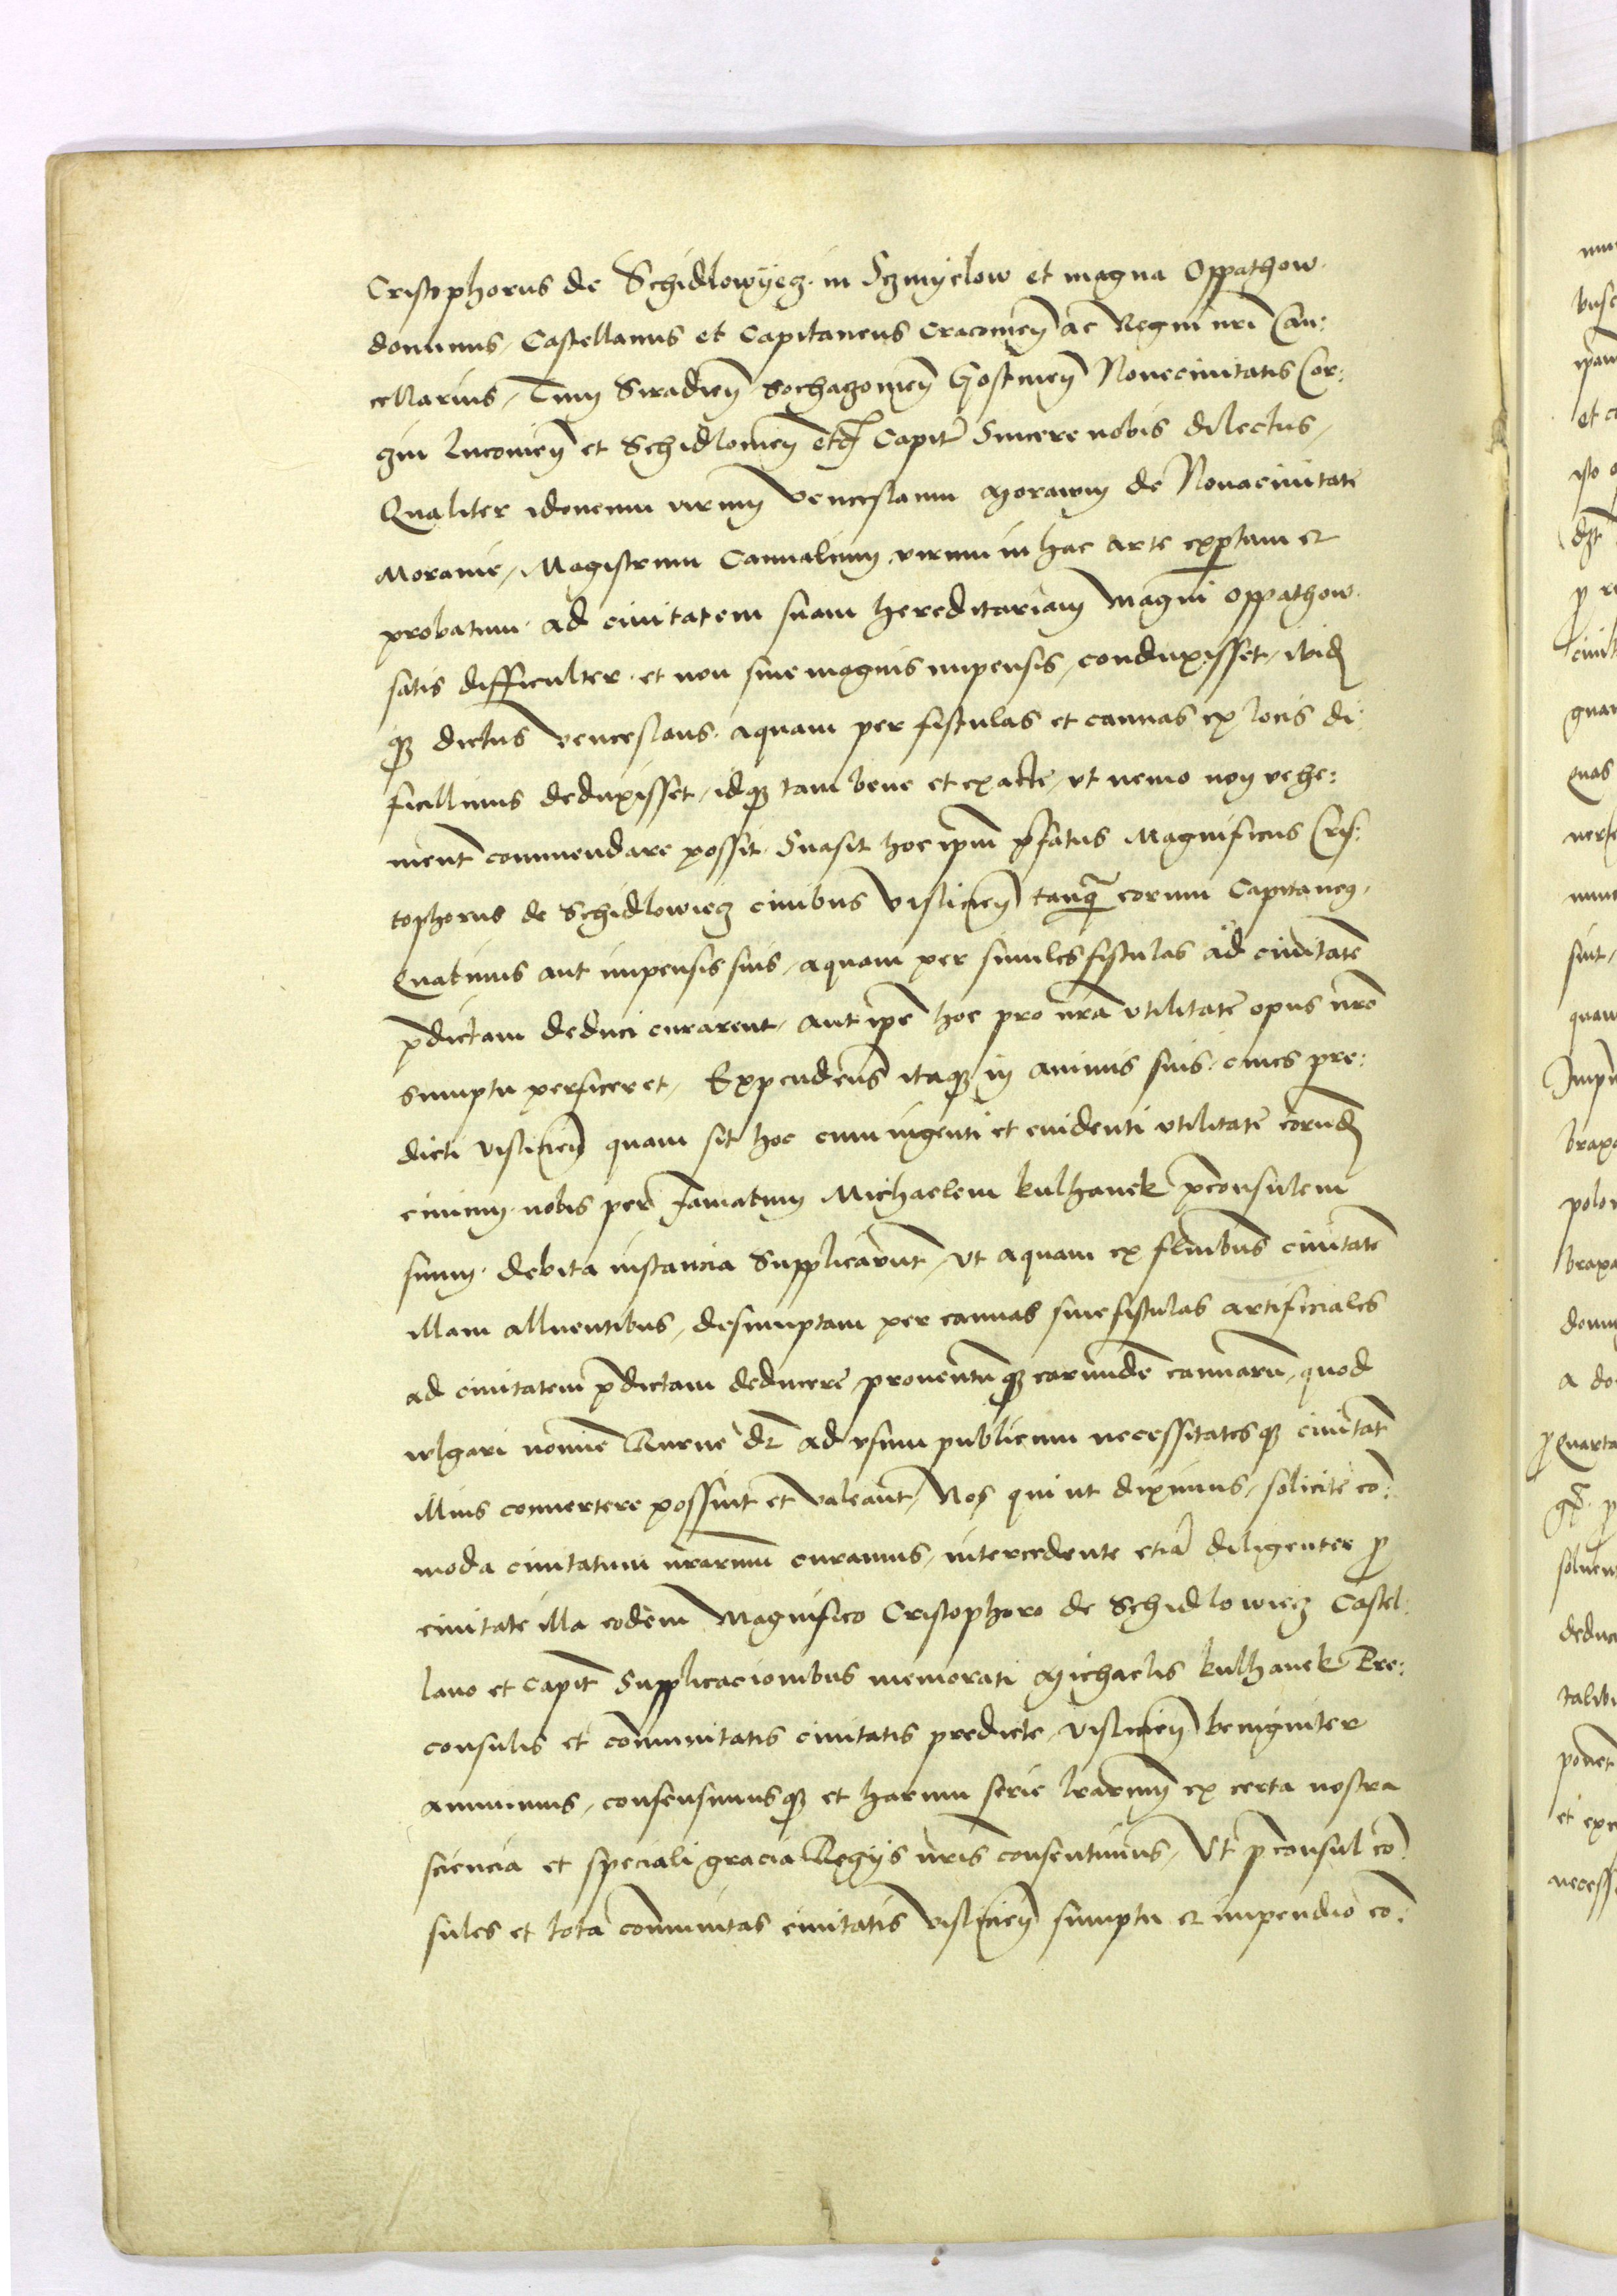 Cristophorus de Schidlowyecz in Szmyelow et magna Oppathow
dominus, Castellanus et Capitaneus Cracovien̄ ac Regni nr̄i Can:
cellarius, Tum Siradien̄ Sochazovien̄ Gostinen̄ Novecivitatis Cor:
gin Lucovien̄ et Schidlovien̄ etc̄ Capit̄ Sincere nobis dilectus,
Qualiter idoneum virum Venceslaum Moravum de Novacivitate
Moravie, Magistrum Cannalium virum in hac arte exp̄tum et
probatum ad civitatem suam hereditariam Magni Oppathow
satis difficulter et non sine magnis impensis, conduxisset, ibiq̄
q₃ dictus Venceslaus aquam per fistulas et cannas ex locis di:
ficillimis deduxisset, idq₃ tam bene et exacte, ut nemo non vehe:
ment̄ commendare possit. Suasit hoc ip̄m p̄fatus Magnificus Cris:
tophorus de Schidlowiecz civibus Vislicien̄ tanq̄ eorum Capitaneus,
Quatinus aut impensis suis, aquam per similes fistulas ad civitatē
p̄dictam deduci curarent, aut ip̄e hoc pro nr̄a utilitatē opus nr̄o
sumptu perficeret, Expendens itaq₃ in animis suis cives pre:
dicti Vislicien̄ quam sit hoc cum ingenti et evidenti utilitatē eorund̄
civium nobis per famatum Michaelem Kulhanek p̄consulem
suum debita instancia Supplicarunt, ut aquam ex flūibus civitatē
illam alluentibus, desumptam per cannas sive fistulas artificiales
ad civitatem p̄dictam deducere, proventūq₃ earundē cannarū, quod
vlgari nomīe Rurne dr̄ ad usum publicum necessitatesq₃ civitat̄
illius convertere possint et valeant, Nos qui ut diximus, solicite cō:
moda civitatum nr̄arum curamus, intercedente etiā diligenter p̄
civitate illa eodem Magnifico Cristophoro de Schidlowiecz Castel:
lano et Capit̄ Supplicacionibus memorati Michaelis Kulhanek Pre:
consulis et cōmunitatis civitatis predicte Vislicien̄ benigniter
annuimus, consensimusq₃ et harum serie lr̄arum ex certa nostra
sciencia et speciali gracia Regijs nr̄is consentimus, Ut p̄consul cō:
sules et tota cōmunitas civitatis Vislicien̄ sumptu et impendio cō: